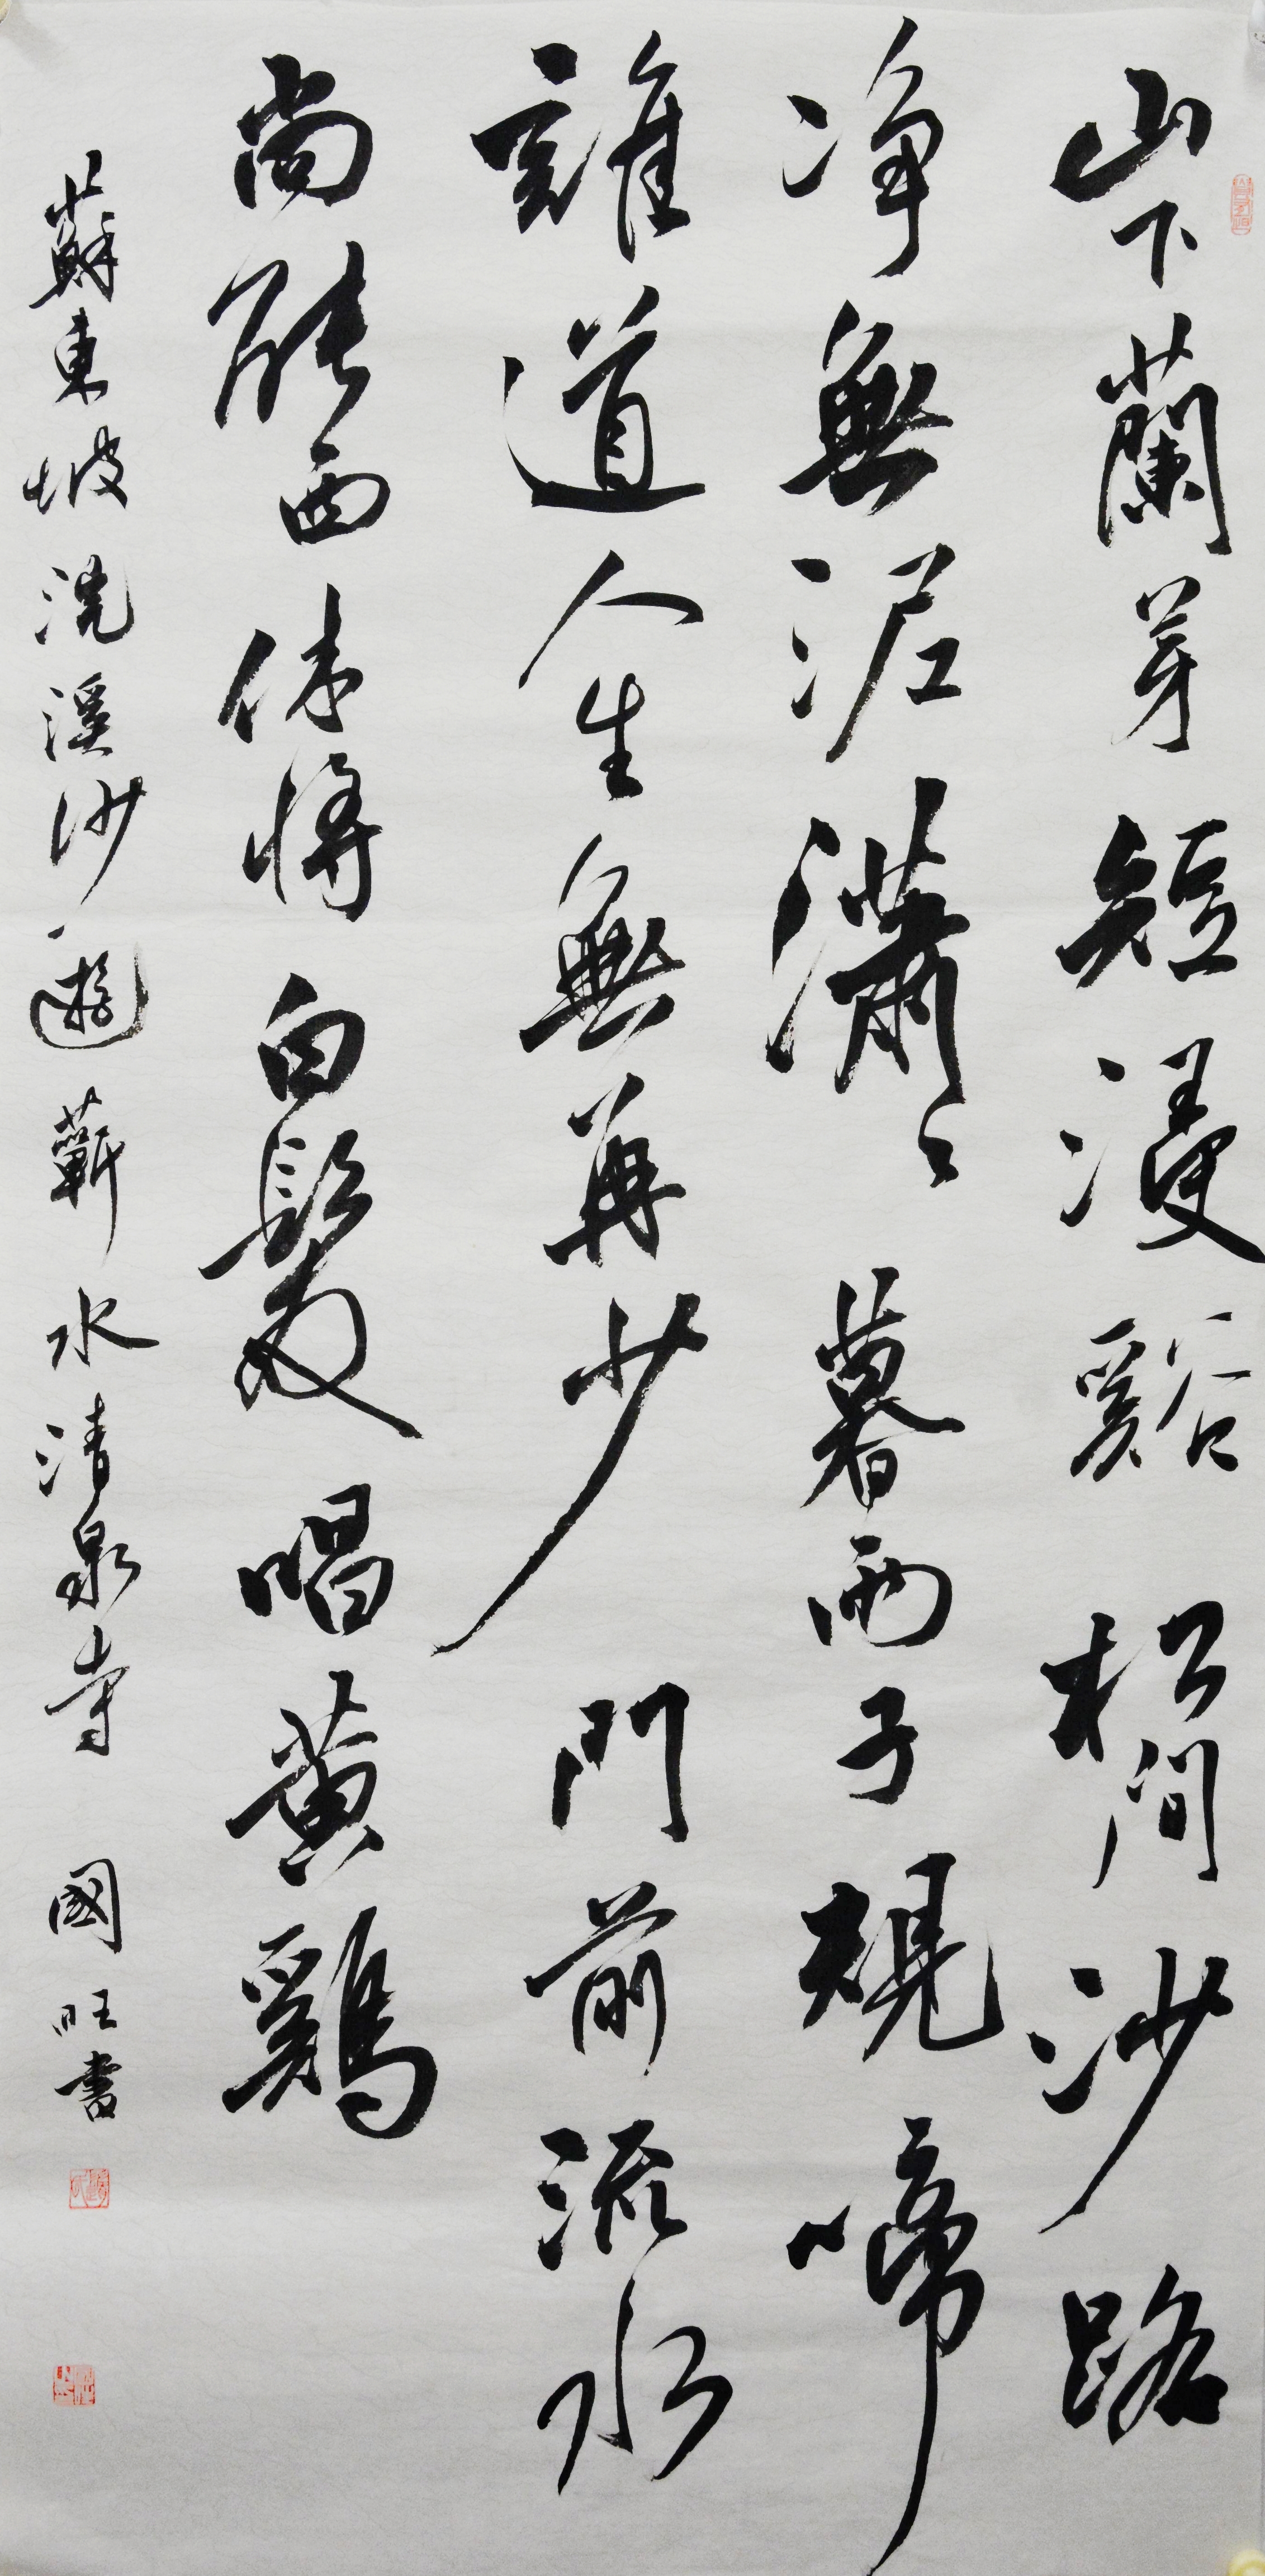 山下蘭芽短浸谿松間沙路
净無泥瀟々暮雨子規啼
誰道人生無再少門前流水
尚能西休將白髮唱黃鷄
蘇東坡浣溪沙遊蘄水清泉寺國旺書